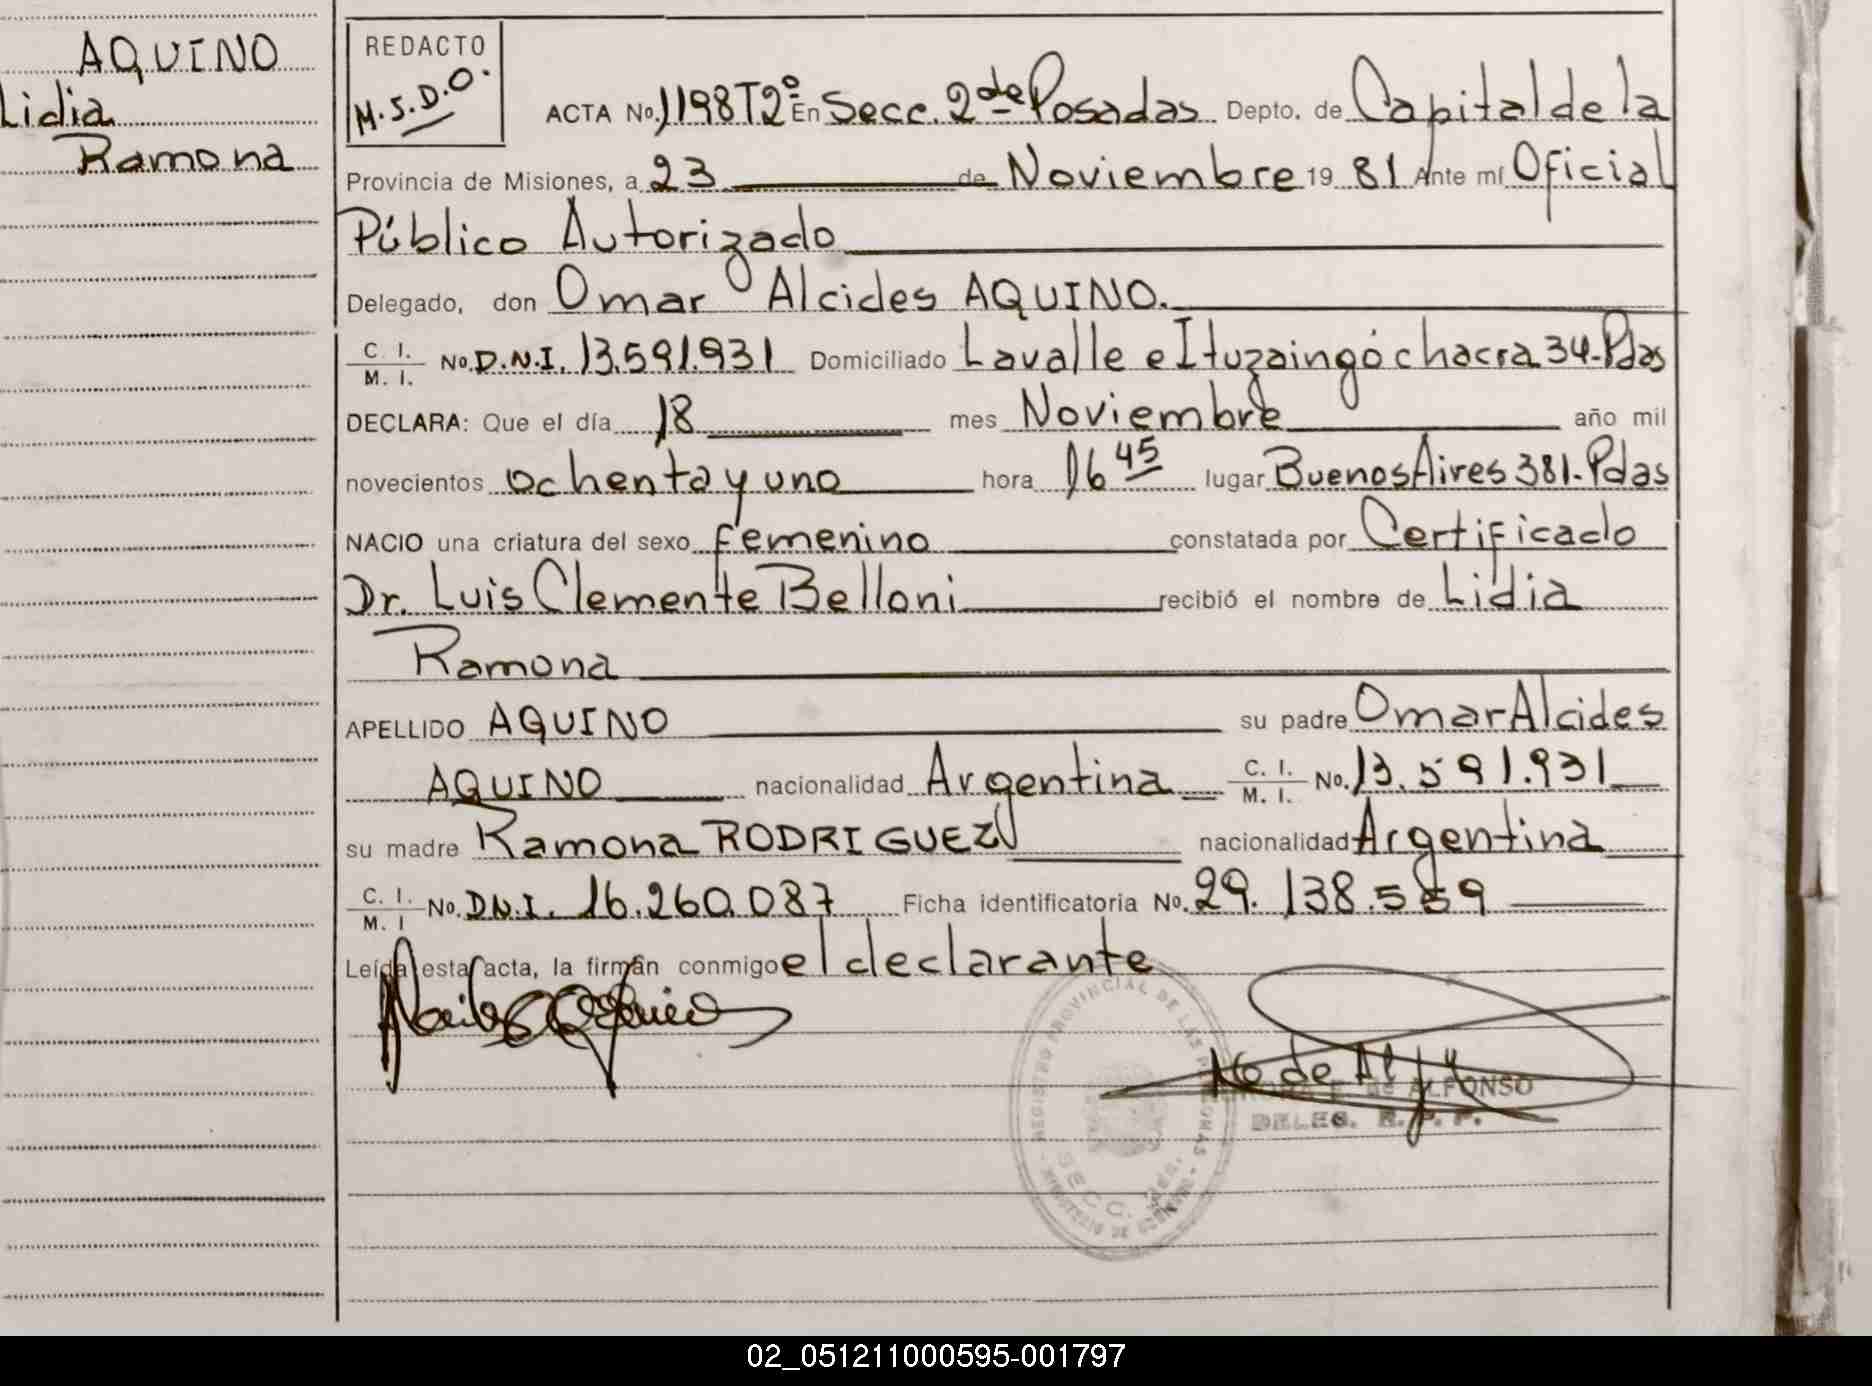 AQUINO
Lidia
Ramona
REDACTO
M.S.D.O.
ACTA No. 1198 T2º En Secc. 2 de Posadas Depto. de Capital de la
Provincia de Misiones, a 23 de Noviembre 19 81 Ante mí Oficial
Público Autorizado
Delegado, don Omar Alcides AQUINO.
C. I. / M. I. No. D.N.I. 13.591.931 Domiciliado Lavalle e Ituzaingó chacra 34-Pdas
DECLARA: Que el día 18 mes Noviembre año mil
novecientos ochenta y uno hora 16 45 lugar Buenos Aires 381-Pdas
NACIO una criatura del sexo femenino constatada por Certificado
Dr. Luis Clemente Belloni recibió el nombre de Lidia
Ramona
APELLIDO AQUINO su padre Omar Alcides
AQUINO nacionalidad Argentina C. I. / M. I. No. 13.591.931
su madre Ramona RODRIGUEZ nacionalidad Argentina
C. I. / M. I No. D.N.I. 16.260.087 Ficha identificatoria No. 29.138.559
Leída esta acta, la firman conmigo el declarante
REGISTRO PROVINCIAL DE LAS PERSONAS - MINISTERIO DE GOBIERNO
SECC.
de ALFONSO
DELEG. R. P. P.
02_051211000595-001797